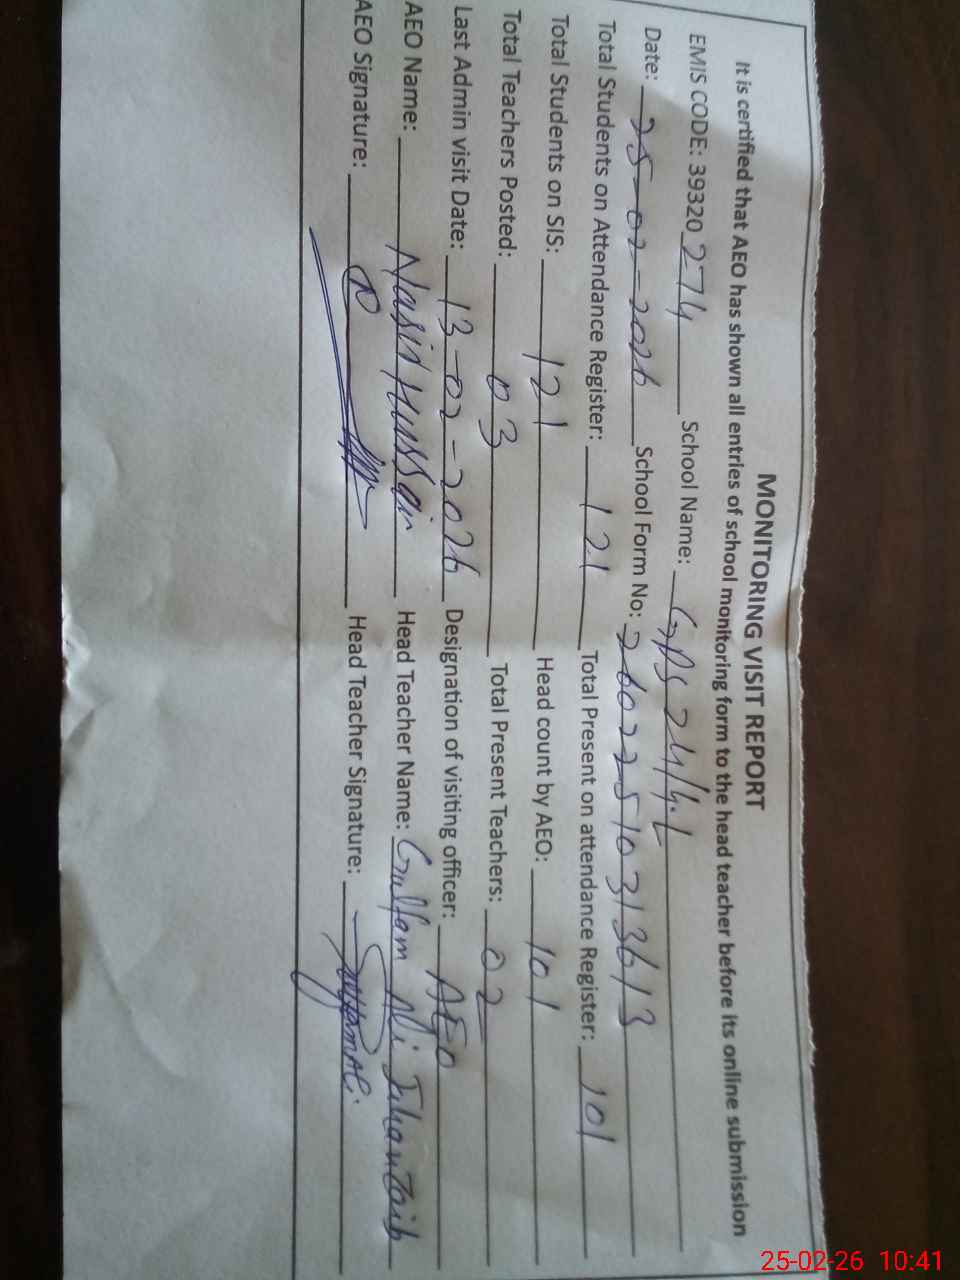 MONITORING VISIT REPORT
It is certified that AEO has shown all entries of school monitoring form to the head teacher before its online submission
EMIS CODE: 39320 274 School Name: GPS 24/4.L
Date: 25-02-2026 School Form No: 26022510313613
Total Students on Attendance Register: 121 Total Present on attendance Register: 101
Total Students on SIS: 121 Head count by AEO: 101
Total Teachers Posted: 03 Total Present Teachers: 02
Last Admin visit Date: 13-02-2026 Designation of visiting officer: AEO
AEO Name: Nasir Hussain Head Teacher Name: Gulfam Ali Jahanzaib
AEO Signature: Head Teacher Signature: Gulfam Ali
25-02-26 10:41